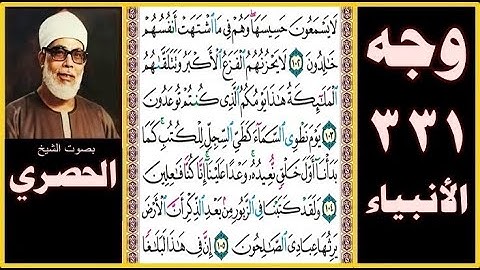 وجه
٣٣١
الأنبياء
لَا يَسْمَعُونَ حَسِيسَهَا ۖ وَهُمْ فِي مَا اشْتَهَتْ أَنفُسُهُمْ
خَٰلِدُونَ ١٠٢ لَا يَحْزُنُهُمُ الْفَزَعُ الْأَكْبَرُ وَتَتَلَقَّىٰهُمُ
الْمَلَٰٓئِكَةُ هَٰذَا يَوْمُكُمُ الَّذِي كُنتُمْ تُوعَدُونَ
١٠٣ يَوْمَ نَطْوِي السَّمَآءَ كَطَيِّ السِّجِلِّ لِلْكُتُبِ ۚ كَمَا
بَدَأْنَآ أَوَّلَ خَلْقٍ نُّعِيدُهُۥ ۚ وَعْدًا عَلَيْنَآ ۚ إِنَّا كُنَّا فَٰعِلِينَ
١٠٤ وَلَقَدْ كَتَبْنَا فِي الزَّبُورِ مِنۢ بَعْدِ الذِّكْرِ أَنَّ الْأَرْضَ
يَرِثُهَا عِبَادِيَ الصَّٰلِحُونَ ١٠٥ إِنَّ فِي هَٰذَا لَبَلَٰغًا
بصوت الشيخ
الحصري